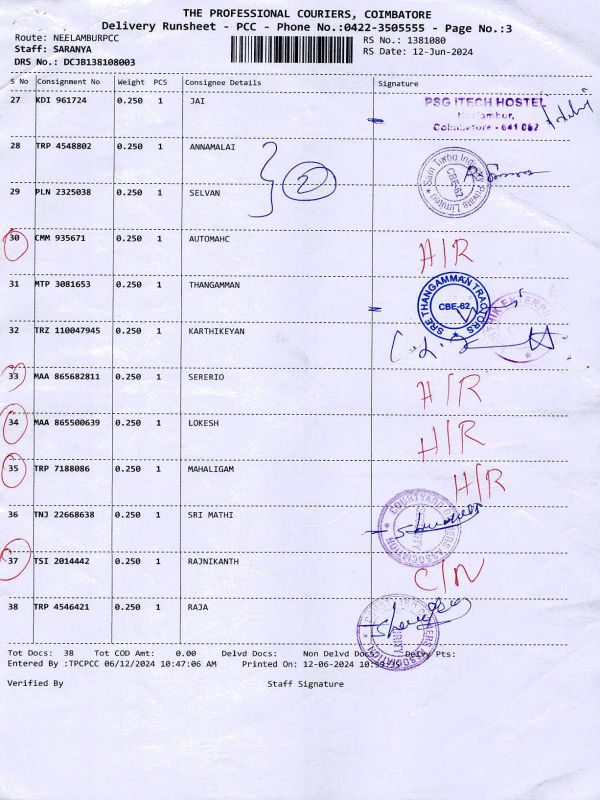 THE PROFESSIONAL COURIERS, COIMBATORE
Delivery Runsheet - PCC - Phone No.:0422-3505555 - Page No.:3
Route: NEELAMBURPCC RS No.: 1381080
Staff: SARANYA RS Date: 12-Jun-2024
DRS No.: DCJB138108003
S No Consignment No Weight PCS Consignee Details Signature
27 KDI 961724 0.250 1 JAI
PSG iTECH HOSTEL
Neelambur,
Coimbatore - 641 062
28 TRP 4548802 0.250 1 ANNAMALAI
2
Sam Turbo Industry Private Limited
CBE-62
29 PLN 2325038 0.250 1 SELVAN
30 CMM 935671 0.250 1 AUTOMAHC H/R
31 MTP 3081653 0.250 1 THANGAMMAN
SRE THANGAMMAN TRACTORS
CBE-62
32 TRZ 110047945 0.250 1 KARTHIKEYAN
33 MAA 865682811 0.250 1 SERERIO H/R
34 MAA 865500639 0.250 1 LOKESH H/R
35 TRP 7188086 0.250 1 MAHALIGAM H/R
36 TNJ 22668638 0.250 1 SRI MATHI
37 TSI 2014442 0.250 1 RAJNIKANTH C/N
38 TRP 4546421 0.250 1 RAJA
Tot Docs: 38 Tot COD Amt: 0.00 Delvd Docs: Non Delvd Docs: Delvy Pts:
Entered By :TPCPCC 06/12/2024 10:47:06 AM Printed On: 12-06-2024
Verified By Staff Signature